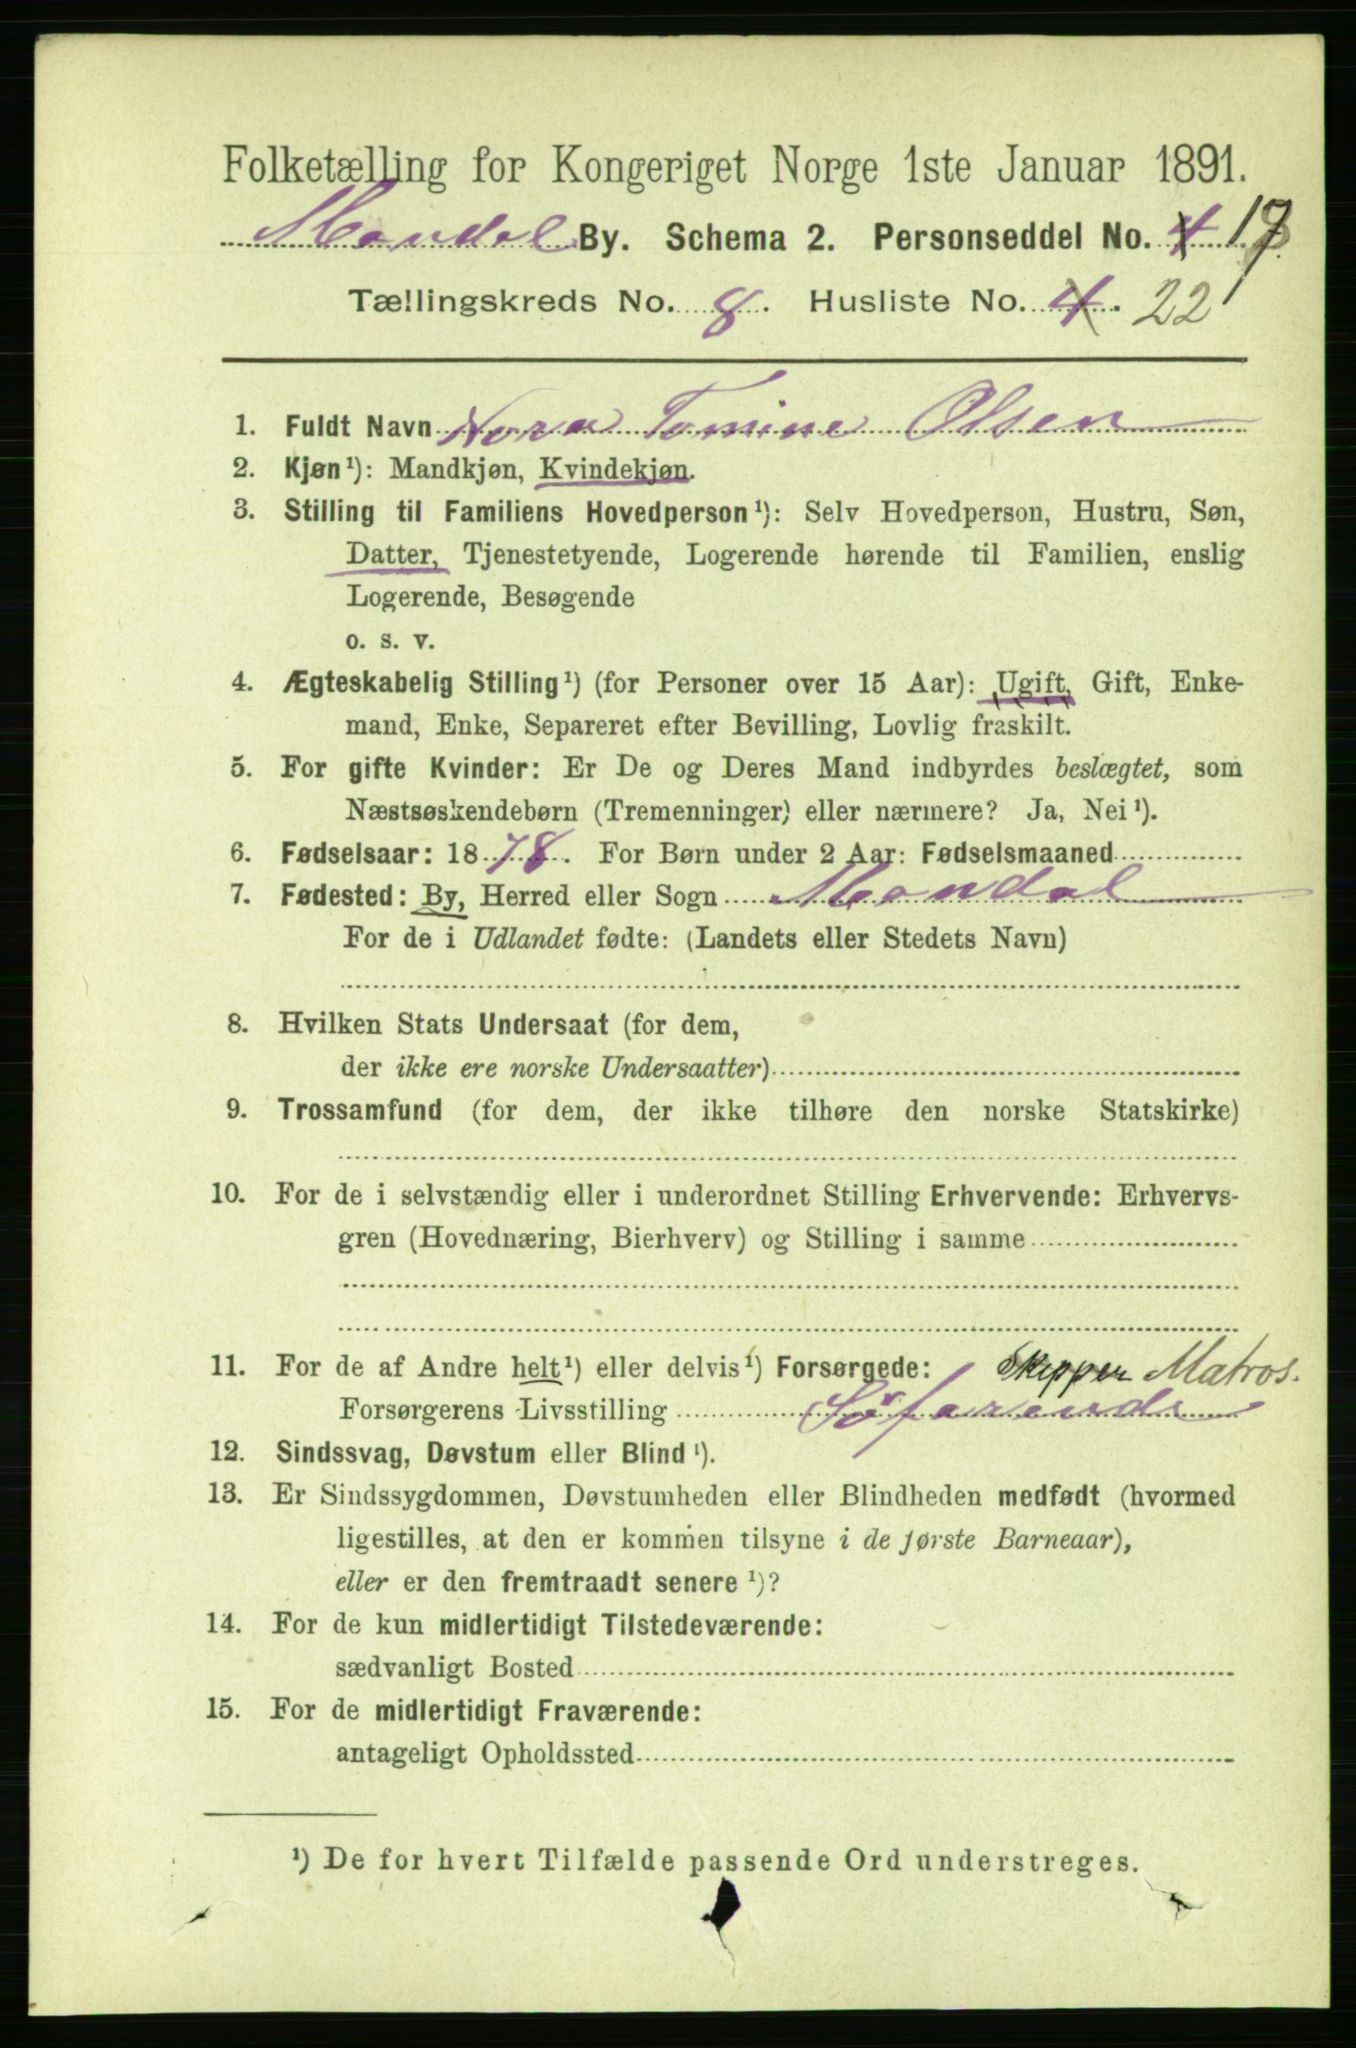 Folketælling for Kongeriget Norge 1ste Januar 1891.
Mandal By. Schema 2. Personseddel No. 4 17
Tællingskreds No. 8. Husliste No. 4. 22
1. Fuldt Navn Nora Tomine Olsen
2. Kjøn¹): Mandkjøn, Kvindekjøn.
3. Stilling til Familiens Hovedperson¹): Selv Hovedperson, Hustru, Søn,
Datter, Tjenestetyende, Logerende hørende til Familien, enslig
Logerende, Besøgende
o. s. v.
4. Ægteskabelig Stilling¹) (for Personer over 15 Aar): Ugift, Gift, Enke-
mand, Enke, Separeret efter Bevilling, Lovlig fraskilt.
5. For gifte Kvinder: Er De og Deres Mand indbyrdes beslægtet, som
Næstsøskendebørn (Tremenninger) eller nærmere? Ja, Nei¹).
6. Fødselsaar: 1878. For Børn under 2 Aar: Fødselsmaaned
7. Fødested: By, Herred eller Sogn Mandal
For de i Udlandet fødte: (Landets eller Stedets Navn)
8. Hvilken Stats Undersaat (for dem,
der ikke ere norske Undersaatter)
9. Trossamfund (for dem, der ikke tilhøre den norske Statskirke)
10. For de i selvstændig eller i underordnet Stilling Erhvervende: Erhvervs-
gren (Hovednæring, Bierhverv) og Stilling i samme
11. For de af Andre helt¹) eller delvis¹) Forsørgede: Skipper Matros.
Forsørgerens Livsstilling Søfarende
12. Sindssvag, Døvstum eller Blind¹).
13. Er Sindssygdommen, Døvstumheden eller Blindheden medfødt (hvormed
ligestilles, at den er kommen tilsyne i de første Barneaar),
eller er den fremtraadt senere¹)?
14. For de kun midlertidigt Tilstedeværende:
sædvanligt Bosted
15. For de midlertidigt Fraværende:
antageligt Opholdssted
¹) De for hvert Tilfælde passende Ord understreges.